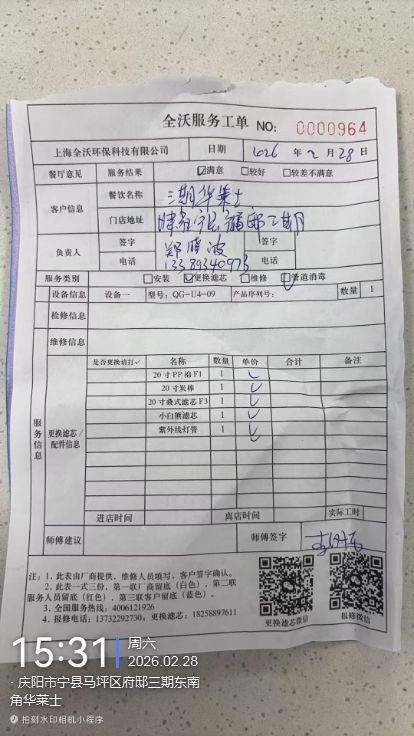 全沃服务工单 NO: 0000964
上海全沃环保科技有限公司 日期 2026 年 2 月 28 日
餐厅意见 服务结果 ☑满意 □较好 □较差不满意
客户信息 餐饮名称 三期华莱士
门店地址 府邸三期
负责人 签字 郑 波 签字
电话 13389340973 电话
服务类别 □安装 ☑更换滤芯 □维修 ☑管道消毒
设备信息 设备一 型号: QG-U4-09 产品序列号: 数量 1
检修信息
维修信息
服务信息
更换滤芯/配件信息
是否更换请打✓ 名称 数量 单价 合计 备注
20 寸 PP 棉 F1 1 ✓
20 寸炭棒 1 ✓
20 寸叠式滤芯 F3 1 ✓
小白锁滤芯 1 ✓
紫外线灯管 1 ✓
进店时间 离店时间 实际工时
师傅建议 师傅签字
注: 1. 此表由厂商提供，维修人员填写，客户签字确认。
2. 此表一式三份，第一联厂商留底（白色），第二联
服务人员留底（红色），第三联客户留底（蓝色）。
3. 全国服务热线: 4006121926
4. 报修电话: 13732292730; 更换滤芯: 18258897611
更换滤芯微信 报修微信
15:31 周六
2026.02.28
· 庆阳市宁县马坪区府邸三期东南
角华莱士
拍刻水印相机小程序